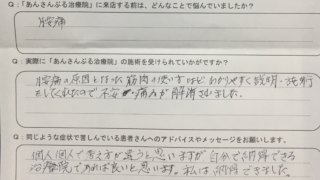 Q：「あんさんぶる治療院」に来店する前は、どんなことで悩んでいましたか？
腰痛
Q：実際に「あんさんぶる治療院」の施術を受けられていかがですか？
腰痛の原因となった筋肉の使い方など わかりやすく説明・施術
をしてくれたので不安や痛みが解消されました。
Q：同じような症状で苦しんでいる患者さんへのアドバイスやメッセージをお願いします。
個人個人で考え方が違うと思いますが自分で納得できる
治療院であれば良いと思います。私は納得できました。